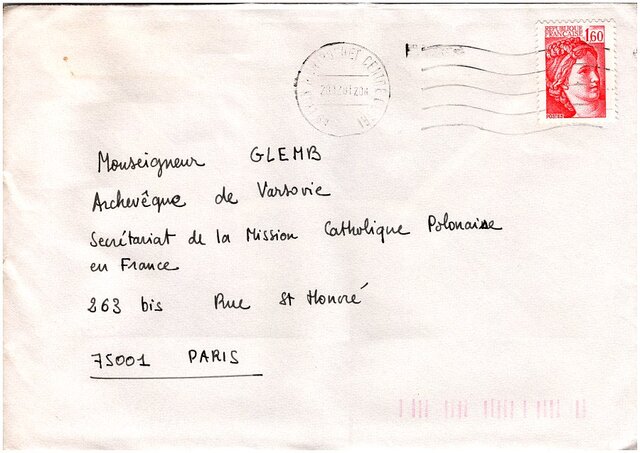 REPUBLIQUE
FRANÇAISE
1,60
POSTES
Monseigneur GLEMB
Archevêque de Varsovie
Secrétariat de la Mission Catholique Polonaise
en France
263 bis Rue St Honoré
75001 PARIS